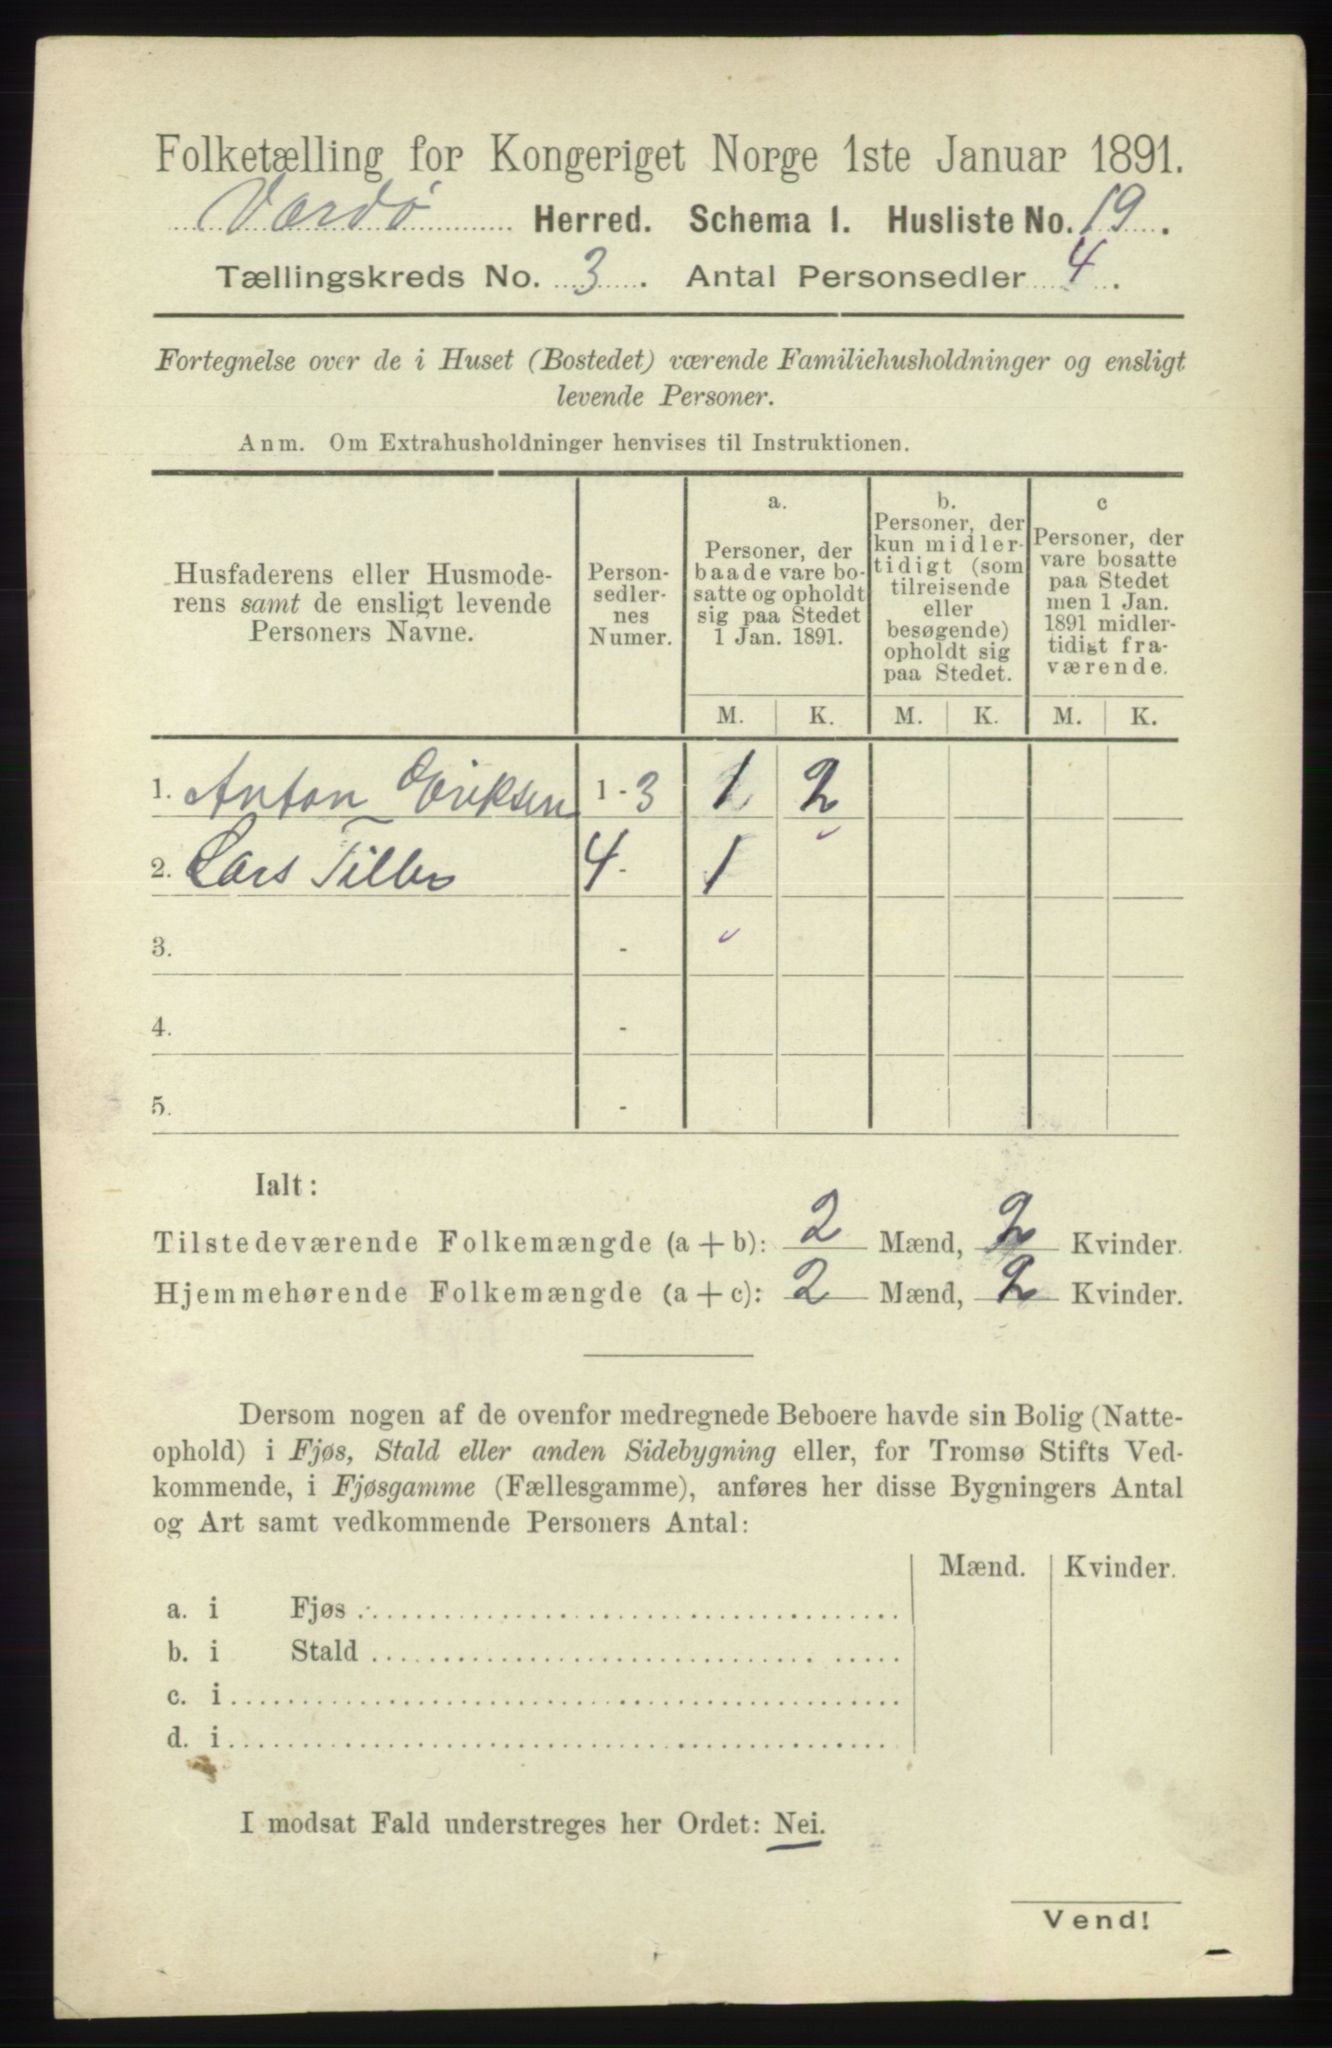 Folketælling for Kongeriget Norge 1ste Januar 1891.
Vardø Herred. Schema 1. Husliste No. 19.
Tællingskreds No. 3. Antal Personsedler 4.
Fortegnelse over de i Huset (Bostedet) værende Familiehusholdninger og ensligt
levende Personer.
Anm. Om Extrahusholdninger henvises til Instruktionen.
Husfaderens eller Husmode-
rens samt de ensligt levende
Personers Navne.
Person-
sedler-
nes
Numer.
a.
Personer, der
baade vare bo-
satte og opholdt
sig paa Stedet
1 Jan. 1891.
b.
Personer, der
kun midler-
tidigt (som
tilreisende
eller
besøgende)
opholdt sig
paa Stedet.
c
Personer, der
vare bosatte
paa Stedet
men 1 Jan.
1891 midler-
tidigt fra-
værende.
M. K. M. K. M. K.
1. Anton Eriksen 1 - 3 1 2
2. Lars Tiller 4 - 1
3. -
4. -
5. -
Ialt:
Tilstedeværende Folkemængde (a + b): 2 Mænd, 2 Kvinder.
Hjemmehørende Folkemængde (a + c): 2 Mænd, 2 Kvinder.
Dersom nogen af de ovenfor medregnede Beboere havde sin Bolig (Natte-
ophold) i Fjøs, Stald eller anden Sidebygning eller, for Tromsø Stifts Ved-
kommende, i Fjøsgamme (Fællesgamme), anføres her disse Bygningers Antal
og Art samt vedkommende Personers Antal:
Mænd. Kvinder.
a. i Fjøs
b. i Stald
c. i
d. i
I modsat Fald understreges her Ordet: Nei.
Vend!